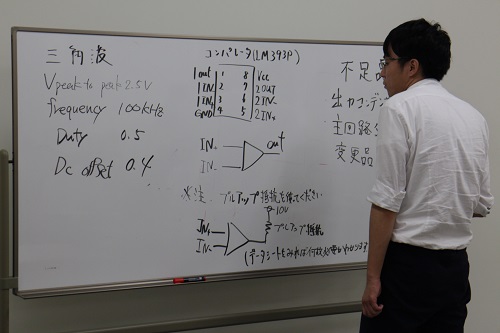 三角波
Vpeak to peak 2.5V
frequency 100kHz
Duty 0.5
Dc offset 0.4
コンパレータ(LM393P)
1out 1 8 Vcc
1IN- 2 7 2OUT
1IN+ 3 6 2IN-
GND 4 5 2IN+
IN+
IN-
out
※注 プルアップ抵抗を使ってください
10V
IN+
IN-
プルアップ抵抗
(データシートをみれば何故必要かわかります
不足
出力コンデン
主回路
変更品